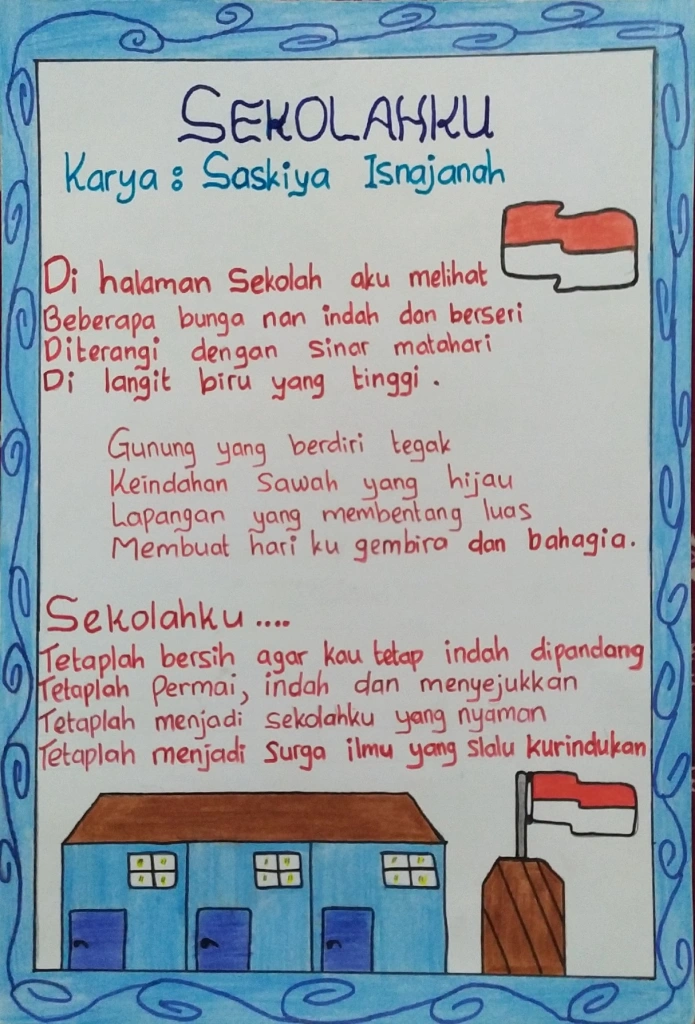 SEKOLAHKU
Karya : Saskiya Isnajanah
Di halaman Sekolah aku melihat
Beberapa bunga nan indah dan berseri
Diterangi dengan sinar matahari
Di langit biru yang tinggi .
Gunung yang berdiri tegak
Keindahan Sawah yang hijau
Lapangan yang membentang luas
Membuat hari ku gembira dan bahagia.
Sekolahku ....
Tetaplah bersih agar kau tetap indah dipandang
Tetaplah Permai, indah dan menyejukkan
Tetaplah menjadi sekolahku yang nyaman
Tetaplah menjadi Surga ilmu yang slalu kurindukan